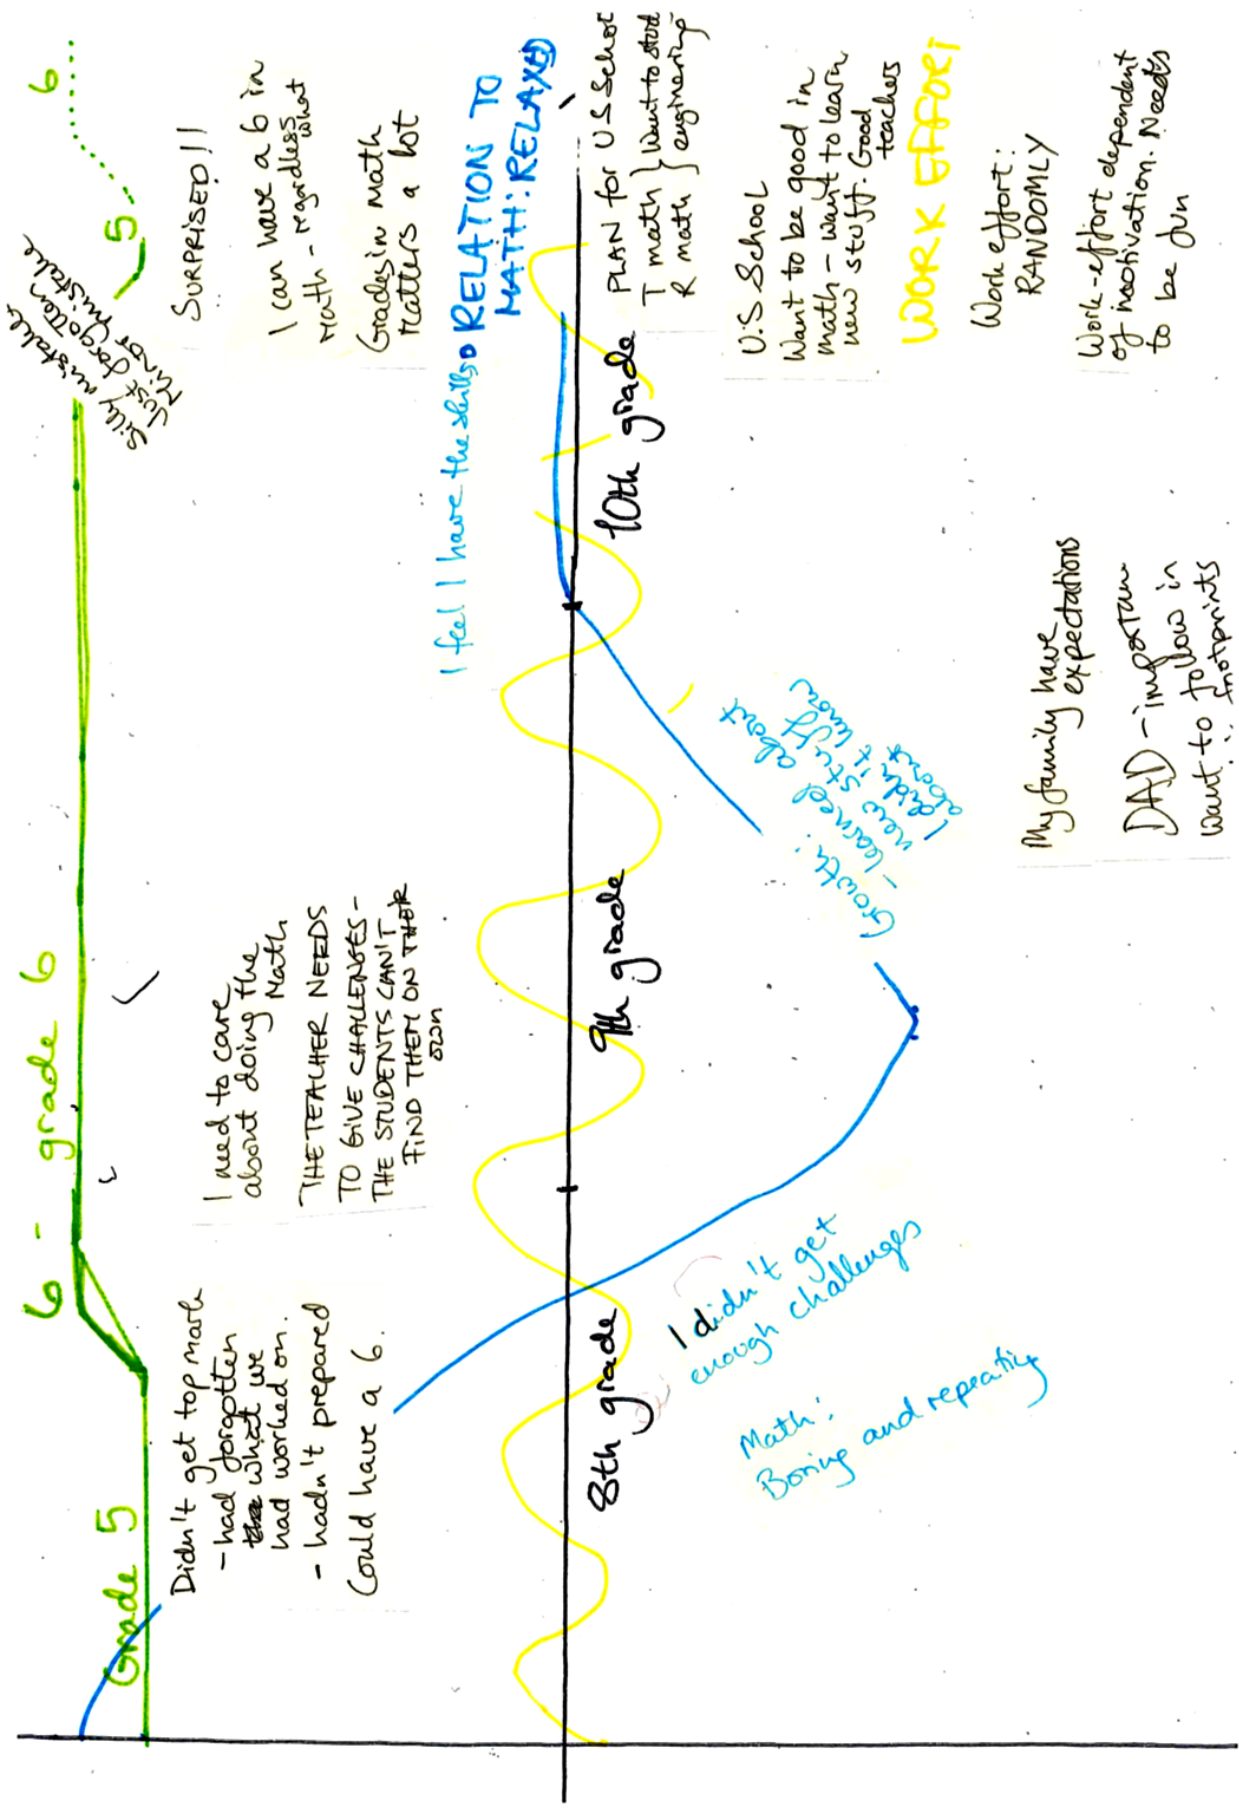 Grade 5
6 - grade 6
5
6
Silly mistakes
Just forgotten
Minor mistake
Didn't get top mark
- had forgotten
the what we
had worked on.
- hadn't prepared
Could have a 6.
I need to care
about doing the
Math
THE TEACHER NEEDS
TO GIVE CHALLENGES-
THE STUDENTS CAN'T
FIND THEM ON THEIR
own
SURPRISED!!
I can have a 6 in
Math - regardless
what
Grades in Math
matters a lot
I feel I have the skills
RELATION TO
MATH: RELAXED
8th grade
9th grade
10th grade
I didn't get
enough challenges
Math:
Boring and repeating
Growth:
- learned about
new stuff
I didn't know
about
PLAN for US School
T math } Want to stud
R math } enginering
U.S School
Want to be good in
math - want to learn
new stuff. Good
teachers
WORK EFFORT
Work effort:
RANDOMLY
Work-effort dependent
of motivation. Needs
to be fun
My family have
expectations
DAD - importan
Want to follow in
footprints